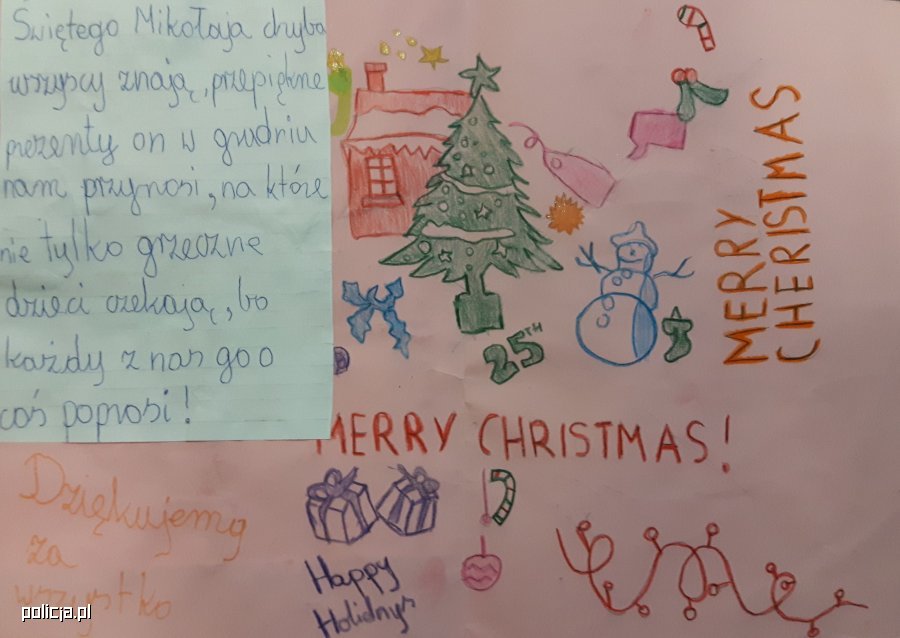 Świętego Mikołaja chyba
wszyscy znają, przepiękne
prezenty on w grudniu
nam przynosi, na które
nie tylko grzeczne
dzieci czekają, bo
każdy z nas go o
coś poprosi!
MERRY
CHERISTMAS
25TH
MERRY CHRISTMAS!
Dziękujemy
za
wszystko
Happy
Holidays
policja.pl